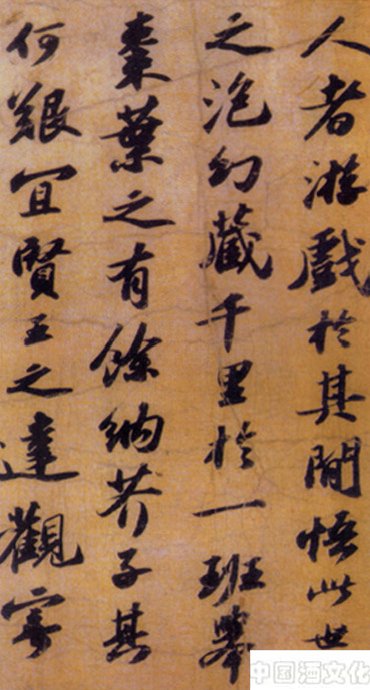 人者游戲於其閒悟此世
之泡幻藏千里於一班舉
棗葉之有餘納芥子其
何艱宜賢王之達觀寄
中国酒文化